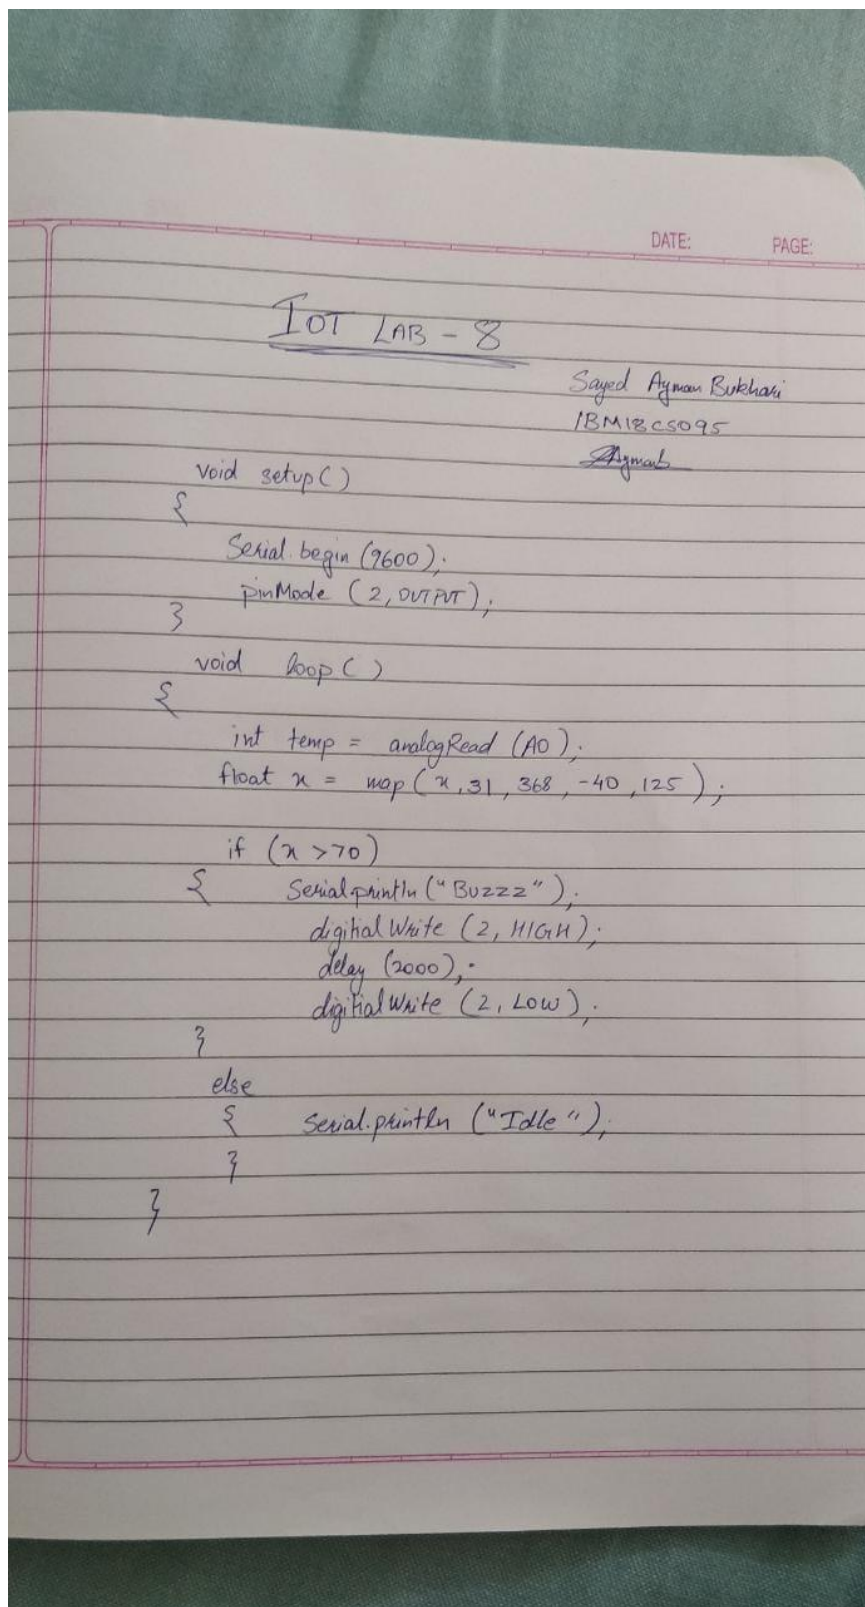 DATE: PAGE:
IOT LAB - 8
Sayed Ayman Bukhari
1BM18CS095
void setup()
{
Serial.begin (9600);
pinMode (2, OUTPUT);
}
void loop()
{
int temp = analogRead (A0);
float x = map(x, 31, 368, -40, 125);
if (x >70)
{ Serial.println ("Buzzz");
digitialWrite (2, HIGH);
delay (2000);
digitialWrite (2, LOW);
}
else
{ Serial.println ("Idle");
}
}